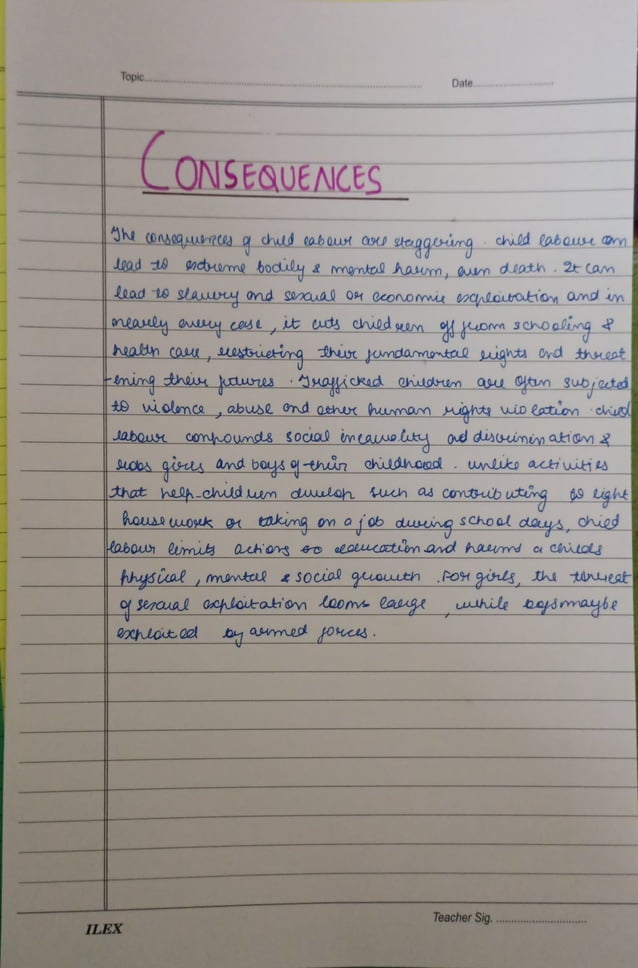 Topic.......... Date..........
CONSEQUENCES
The consequences of child labour are staggering. child labour can
lead to extreme bodily & mental harm, even death. It can
lead to slavery and sexual or economic exploitation and in
nearly every case, it cuts children off from schooling &
health care, restricting their fundamental rights and threat
-ening their futures. Trafficked children are often subjected
to violence, abuse and other human rights violation. child
labour compounds social inequality and discrimination &
robs girls and boys of their childhood. unlike activities
that help children develop such as contributing to light
housework or taking on a job during school days, child
labour limits actions to education and harms a childs
physical, mental & social growth. For girls, the threat
of sexual exploitation looms large, while boys maybe
exploited by armed forces.
Teacher Sig. ..........
ILEX